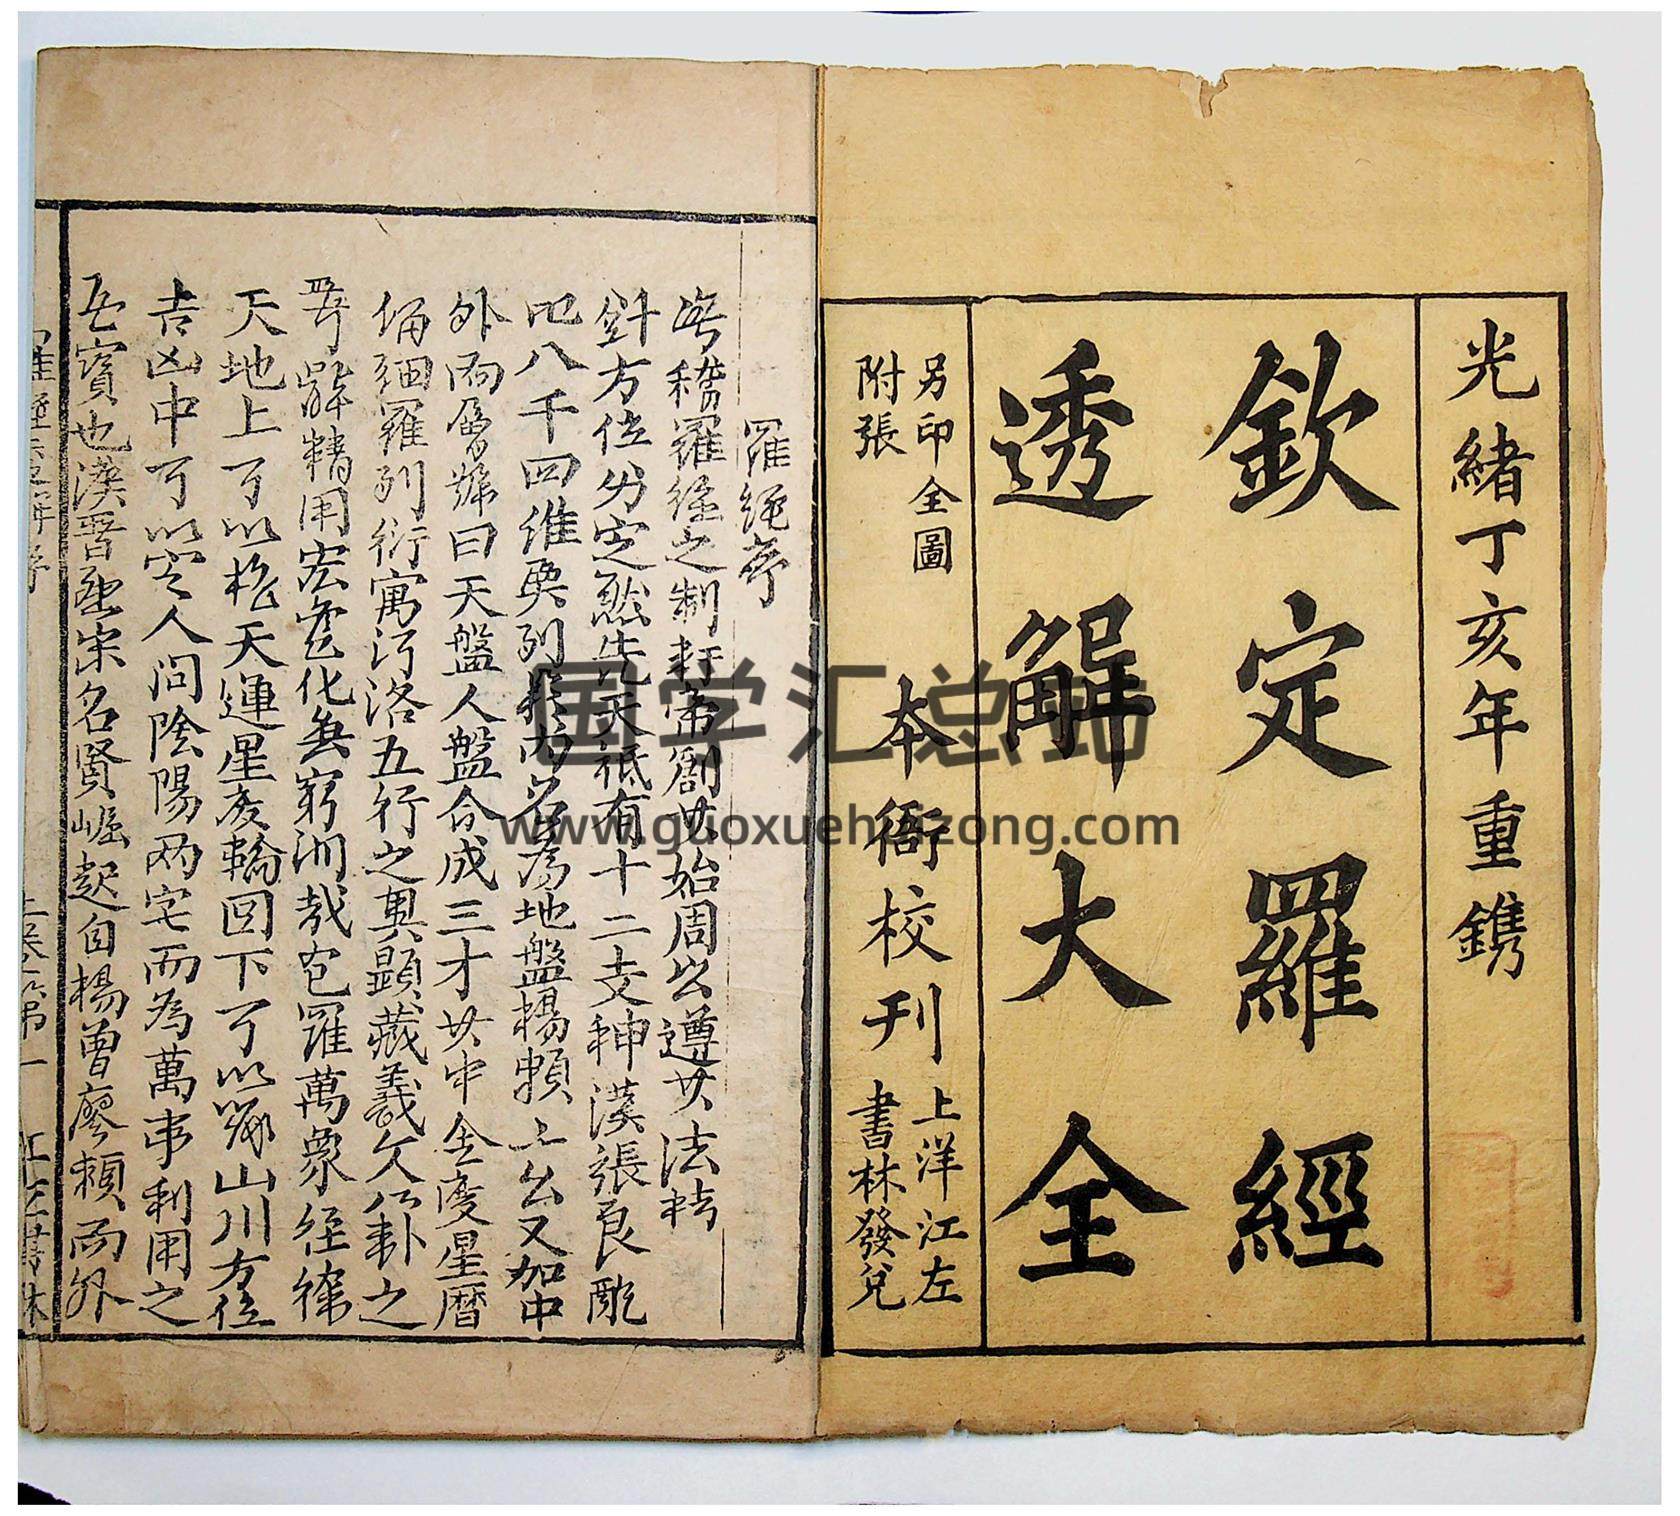 光緒丁亥年重鐫
欽定羅經
透解大全
另印全圖
附張
本衙校刊
上洋江左
書林發兌
羅經序
稽羅經之制軒帝創其始周公遵其法
針方位分定然先天祗有十二支神漢張良配
八千四維列為地盤楊賴二公又加中
外兩層號曰天盤人盤合成三才其中全度星曆
緬羅列衍寓河洛五行之輿顯藏羲文八卦之
精用宏變化無窮淵哉包羅萬象經緯
天地上可以格天運星度輪回下可以山川方位
吉凶中可以定人間陰陽兩宅而為萬事利用之
至寳也漢晋至宋名賢崛起自楊曾廖賴而外
国学汇总站
www.guoxuehuizong.com